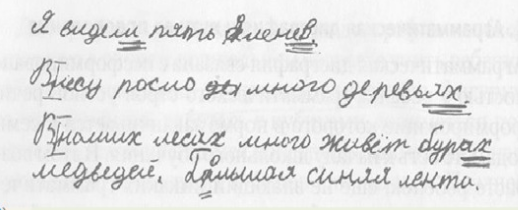 Я сидел пять оленев.
В лесу росло много деревьях.
В наших лесах много живёт бурах
медведей. Большая синяя лента.